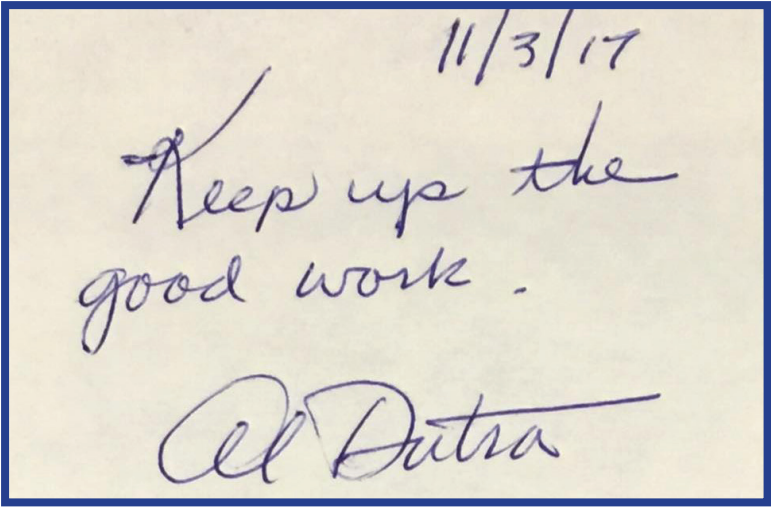 11/3/17
Keep up the
good work.
Al Dutra